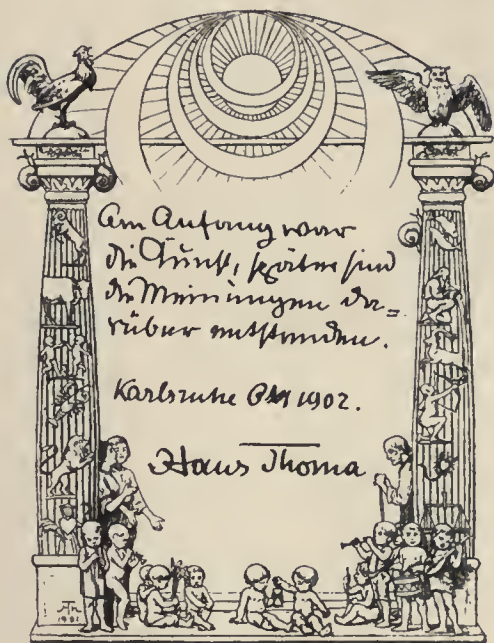 Am Anfang war
die Kunst, später sind
die Meinungen da=
rüber entstanden.
Karlsruhe Okt 1902.
Hans Thoma